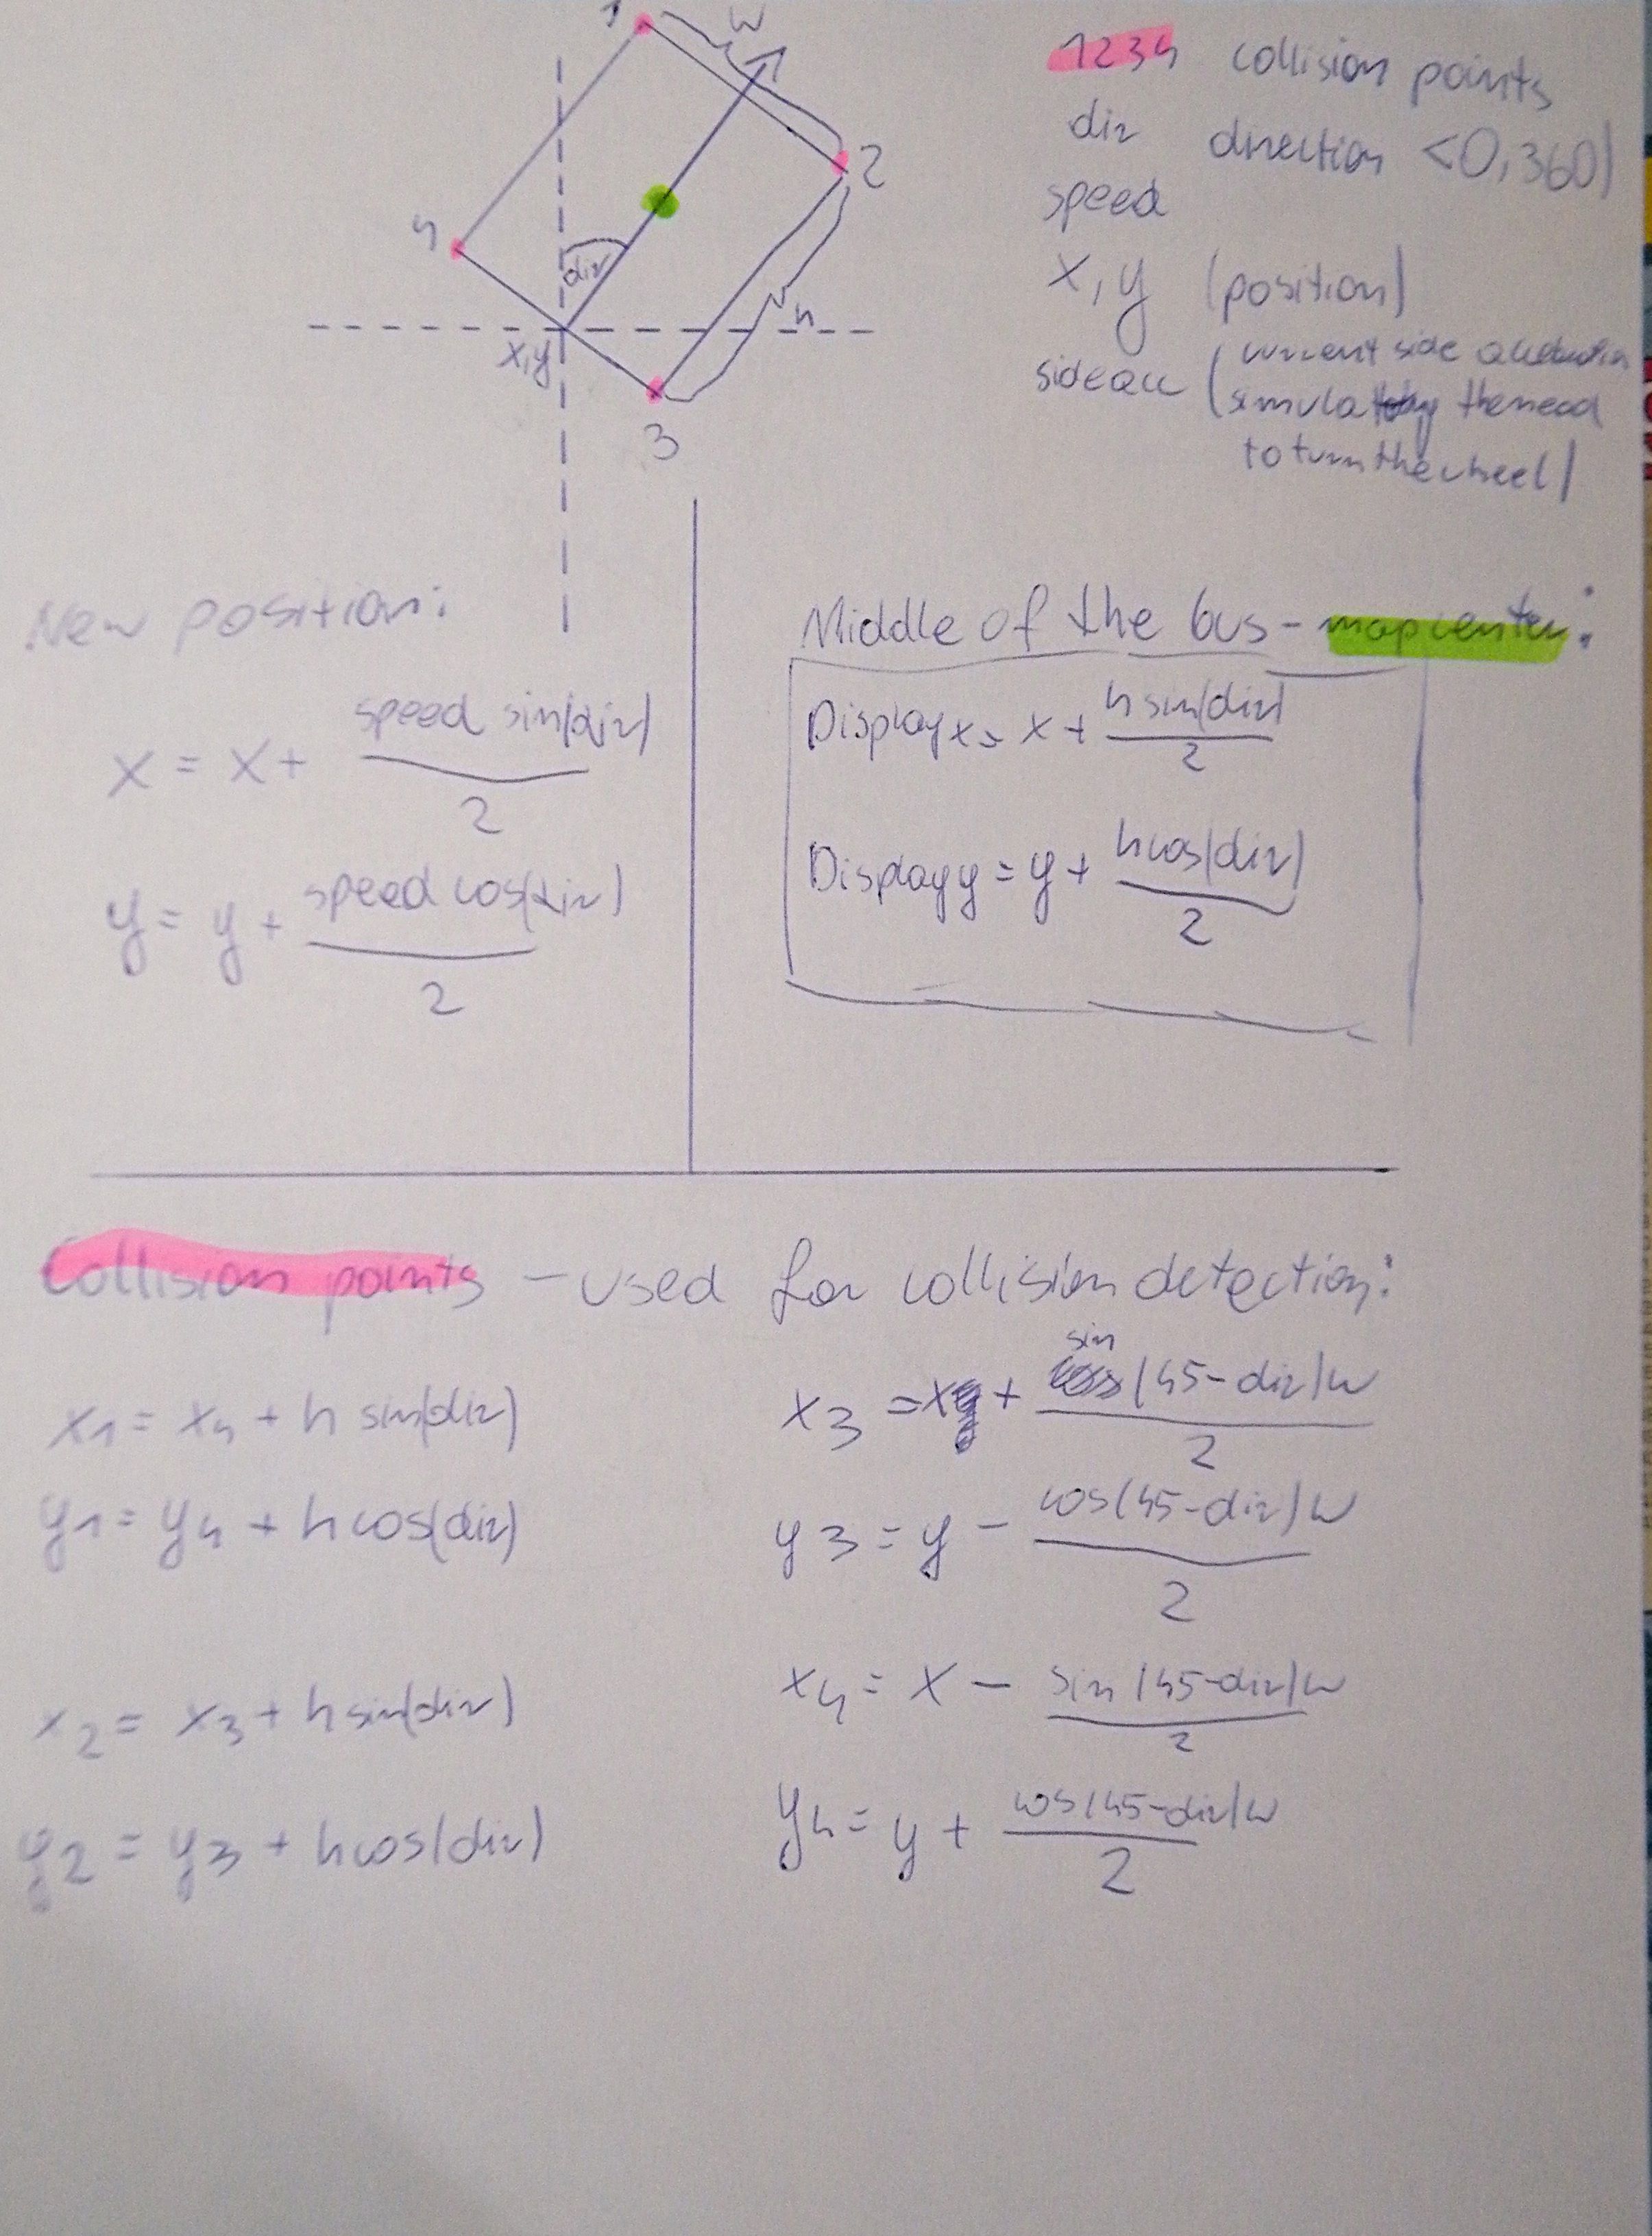 1
w
2
4
dir
h
x,y
3
1234 collision points
dir direction <0,360)
speed
x, y (position)
sideacc (current side
simulating the need
to turn the wheel)
New position:
x = x + speed sin(dir) / 2
y = y + speed cos(dir) / 2
Middle of the bus - map center:
Display x = x + h sin(dir) / 2
Display y = y + h cos(dir) / 2
Collision points - used for collision detection:
x1 = x4 + h sin(dir)
y1 = y4 + h cos(dir)
x2 = x3 + h sin(dir)
y2 = y3 + h cos(dir)
x3 = x + sin(45-dir)w / 2
y3 = y - cos(45-dir)w / 2
x4 = x - sin(45-dir)w / 2
y4 = y + cos(45-dir)w / 2